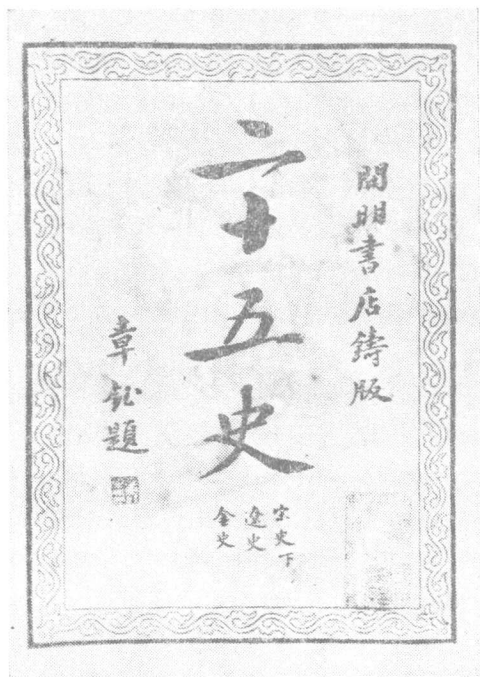 開明書店鋳版
二十五史
宋史下
遼史
金史
章鈺題